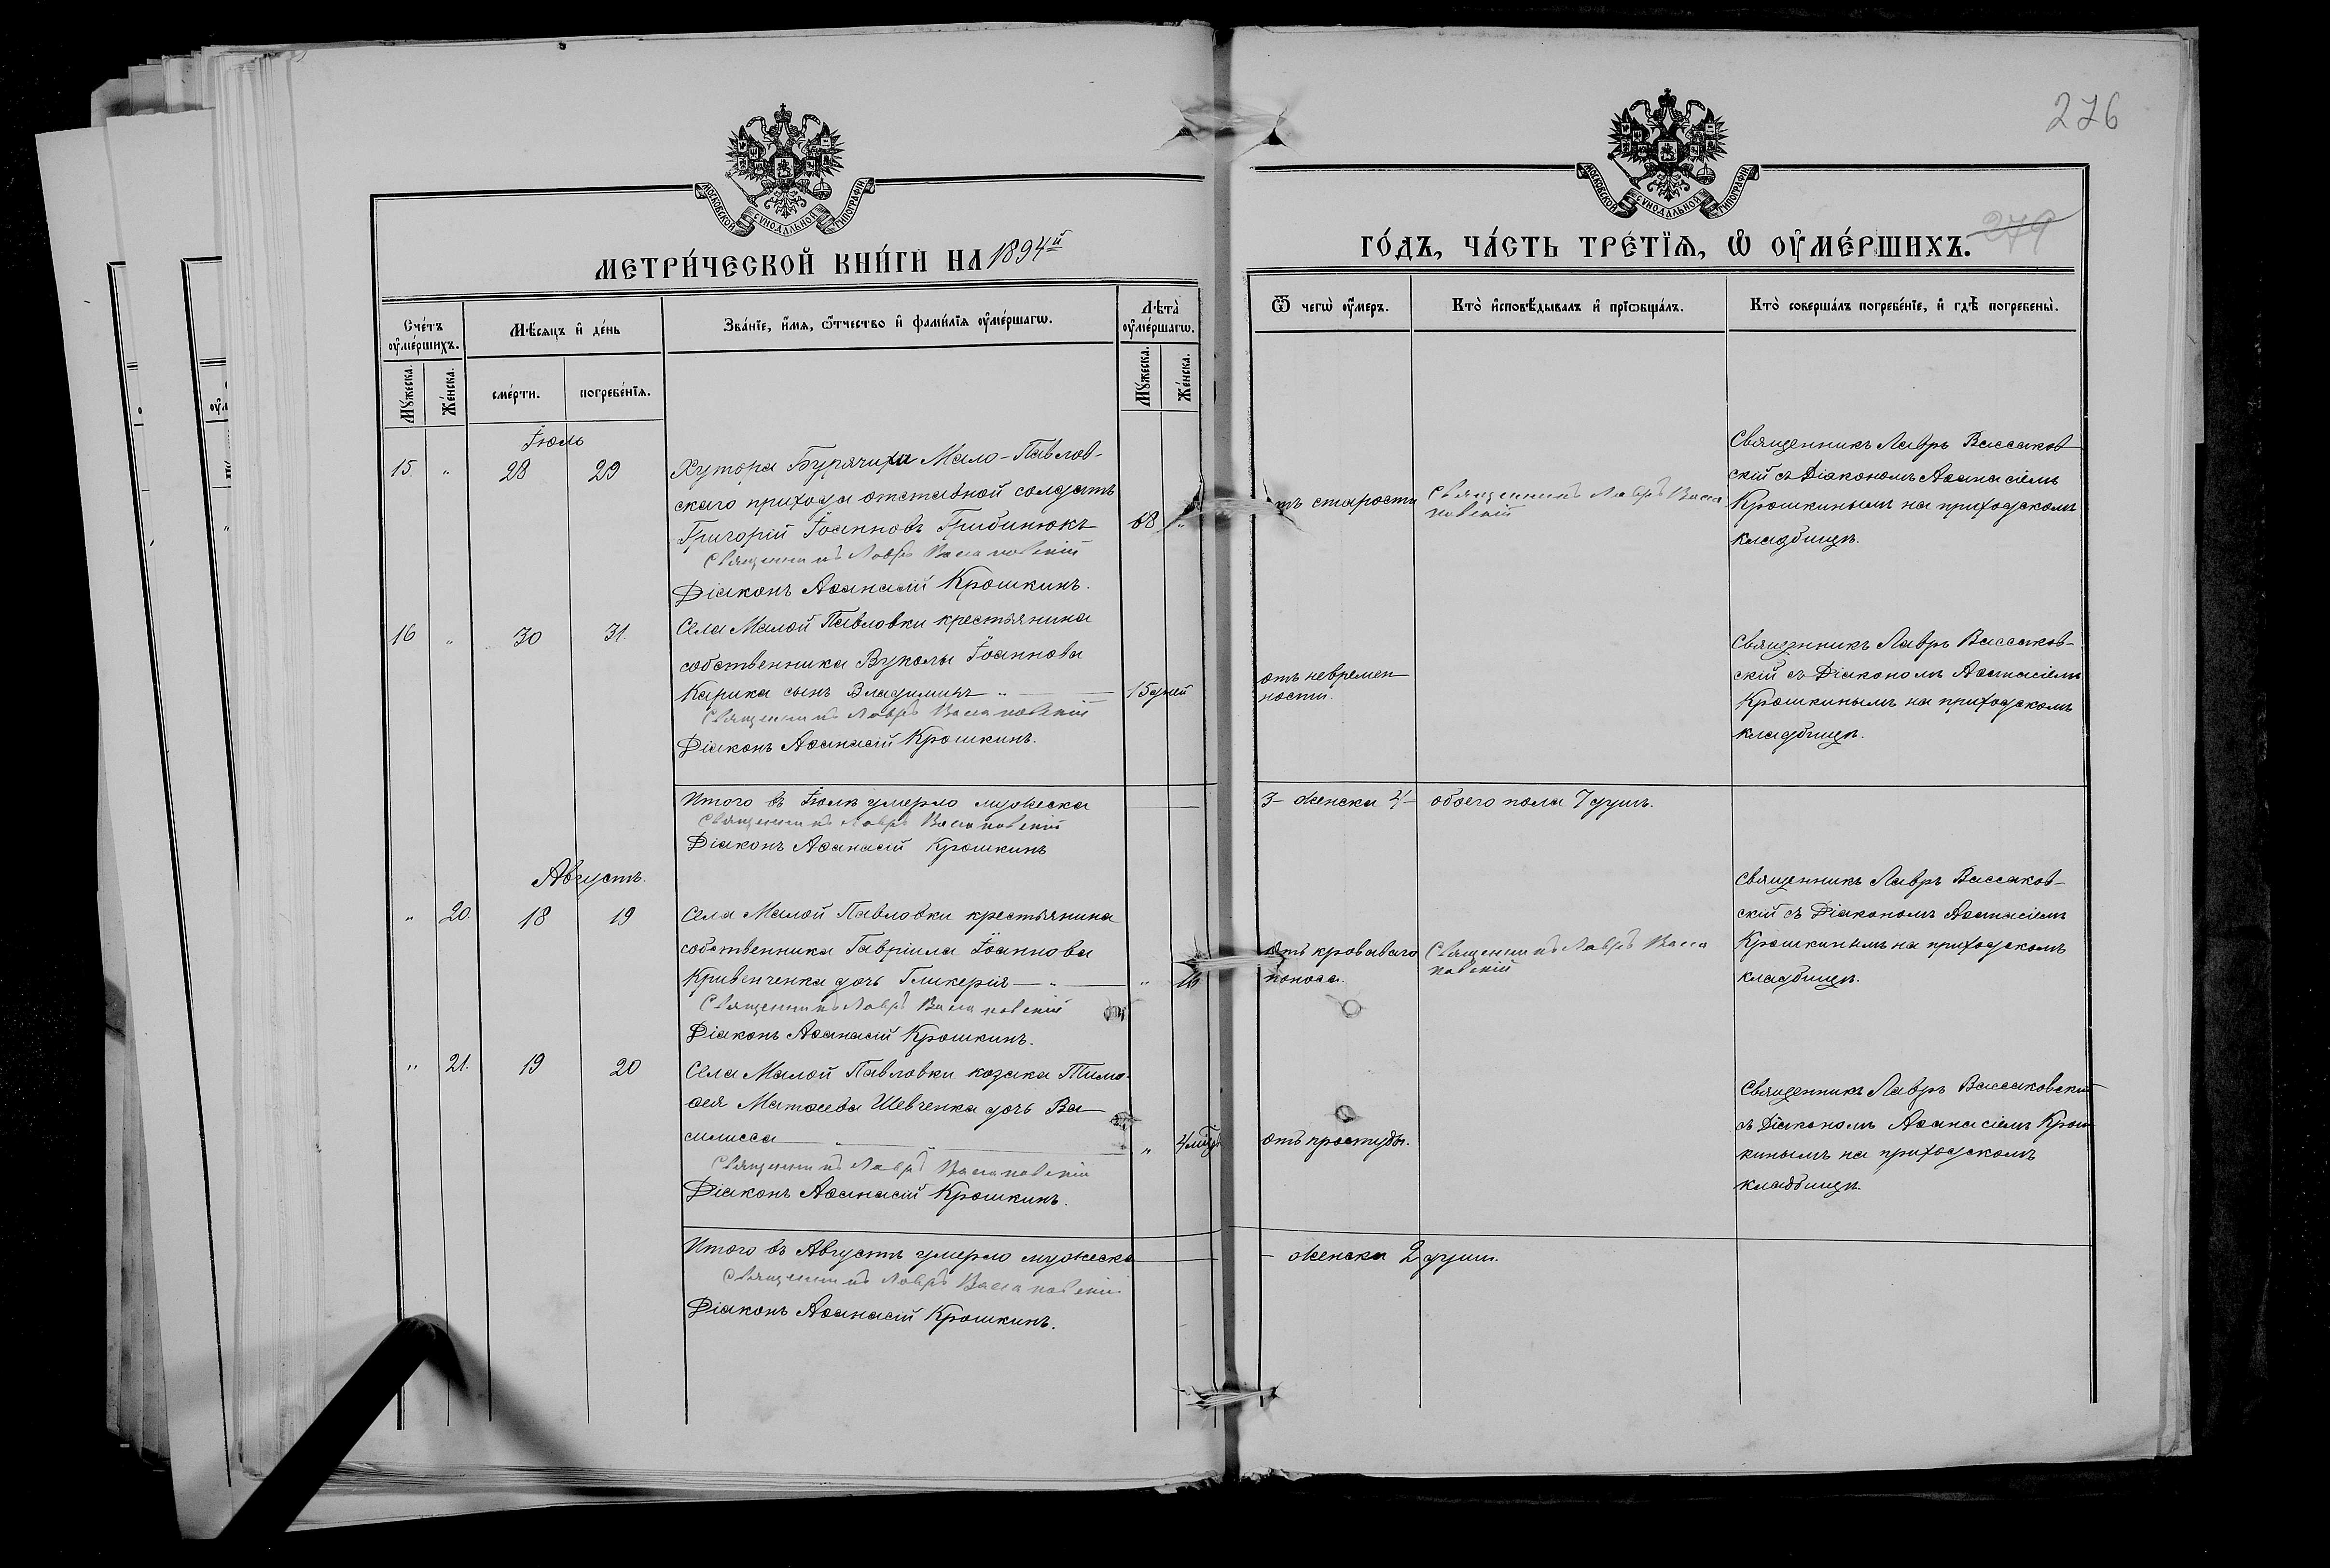 276
МОСКОВСКОЙ СѴНОДАЛЬНОЙ ТИПОГРАФІИ
МОСКОВСКОЙ СѴНОДАЛЬНОЙ ТИПОГРАФІИ
МЕТРИ́ЧЕСКОЙ КНИ́ГИ НА 1894й
ГО́ДЪ, ЧА́СТЬ ТРЕ́ТЇѦ, Ѡ҆ ОУ҆МЕ́РШИХЪ. 279
Сче́тъ оу҆ме́ршихъ.
Мѣ́сяцъ и҆ де́нь
Зва́нїе, и҆́мѧ, ѻ҆́тчество и҆ фами́лїѧ оу҆ме́ршагѡ.
Лѣ́та оу҆ме́ршагѡ.
Ѿ чегѡ̀ оу҆́меръ.
Кто̀ и҆сповѣ́дывалъ и҆ прїѡбща́лъ.
Кто̀ соверша́лъ погребе́нїе, и҆ гдѣ̀ погребены̀.
Мꙋ́жеска.
Же́нска.
сме́рти.
погребе́нїѧ.
Мꙋ́жеска.
Же́нска.
Іюль
15 " 28 29
Хутора Бурячиха Мало-Павлов-
скаго прихода отставной солдатъ
Григорій Іоанновъ Грибинюкъ 68 "
Священникъ Лавръ Вассаковскій
Діаконъ Аѳанасій Крошкинъ.
отъ старости
Священникъ Лавръ Васса
ковскій
Священникъ Лавръ Вассаков-
скій съ Діакономъ Аѳанасіемъ
Крошкинымъ на приходскомъ
кладбищѣ.
16 " 30 31.
Села Малой Павловки крестьянина
собственника Вуколы Іоаннова
Карика сынъ Владиміръ " 15 дней
Священникъ Лавръ Вассаковскій
Діаконъ Аѳанасій Крошкинъ.
отъ невремен
ности.
Священникъ Лавръ Вассаков-
скій съ Діакономъ Аѳанасіемъ
Крошкинымъ на приходскомъ
кладбищѣ.
Итого въ Іюлѣ умерло мужеска — 3 - женска 4 - обоего пола 7 душъ.
Священникъ Лавръ Вассаковскій
Діаконъ Аѳанасій Крошкинъ
Августъ.
" 20. 18 19
Села Малой Павловки крестьянина
собственника Гавріила Іоаннова
Кривенченка дочь Гликерія — " — "
Священникъ Лавръ Вассаковскій
Діаконъ Аѳанасій Крошкинъ.
Отъ кроваваго
поноса.
Священникъ Лавръ Васса
ковскій
Священникъ Лавръ Вассаков-
скій съ Діакономъ Аѳанасіемъ
Крошкинымъ на приходскомъ
кладбищѣ.
" 21. 19 20
Села Малой Павловки козака Тимо-
ѳея Матѳеева Шевченка дочь Ва-
силисса — " — " 4 мѣс.
Священникъ Лавръ Вассаковскій
Діаконъ Аѳанасій Крошкинъ.
отъ простуды.
Священникъ Лавръ Вассаковскій
съ Діакономъ Аѳанасіемъ Крош
кинымъ на приходскомъ
кладбищѣ.
Итого въ Августѣ умерло мужеска — - женска 2 души.
Священникъ Лавръ Вассаковскій
Діаконъ Аѳанасій Крошкинъ.